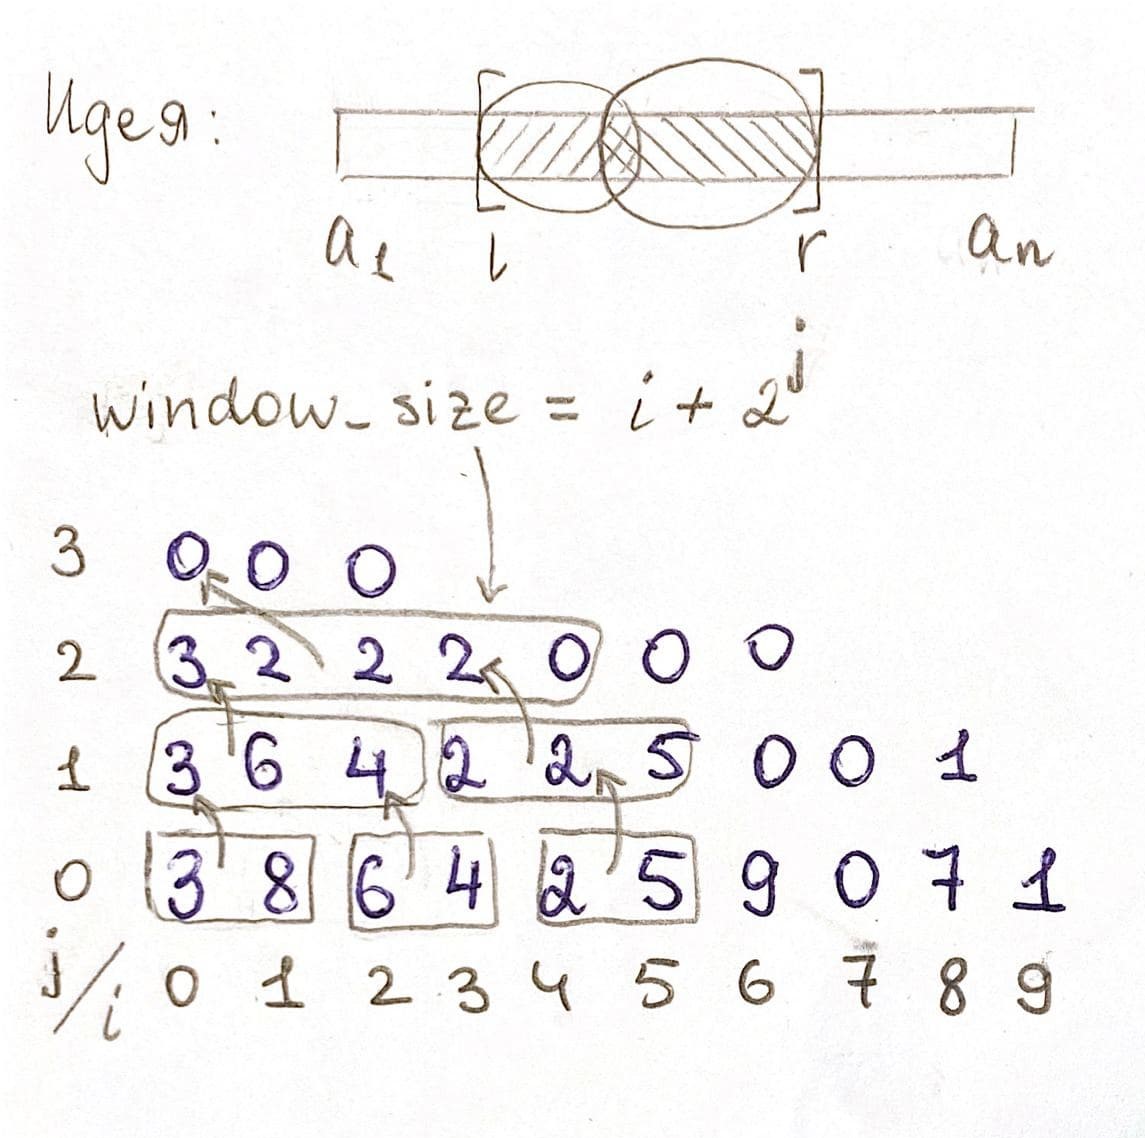 Идея:
a₁ l r aₙ
window_size = i + 2ʲ
3 0 0 0
2 3 2 2 2 0 0 0
1 3 6 4 2 2 5 0 0 1
0 3 8 6 4 2 5 9 0 7 1
j/i 0 1 2 3 4 5 6 7 8 9